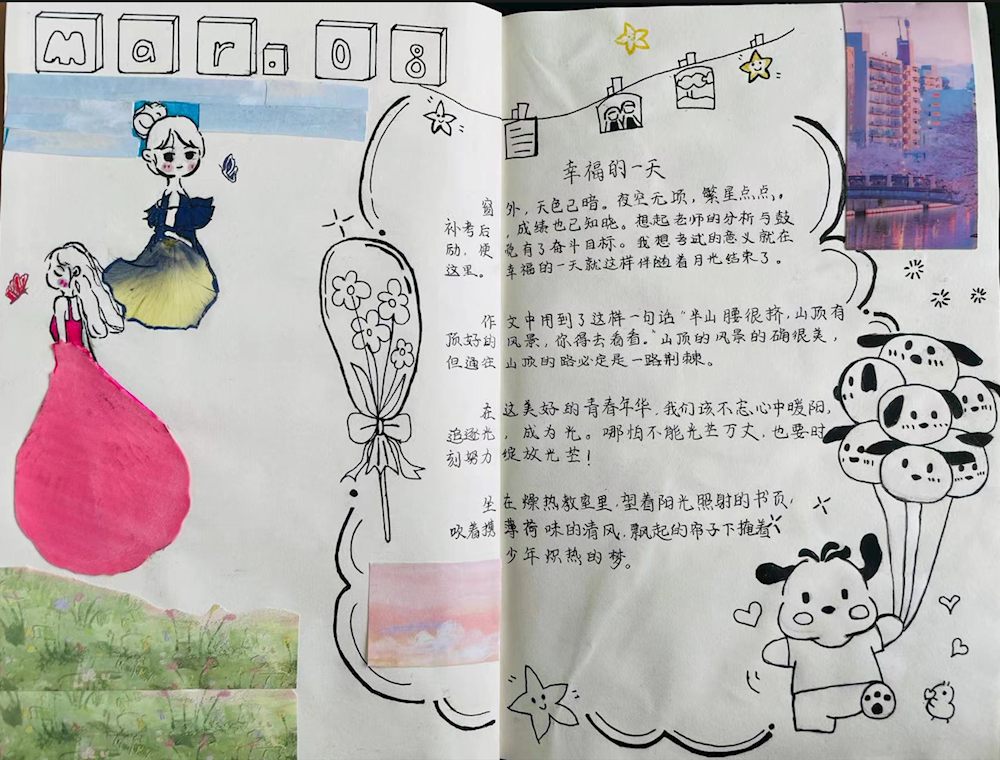 Mar. 08
幸福的一天
窗外，天色已暗。夜空无项，繁星点点。
补考后，成绩也已知晓。想起老师的分析与鼓
励，便觉有了奋斗目标。我想考试的意义就在
这里。幸福的一天就这样伴随着月光结束了。
作文中用到了这样一句话“半山腰很挤，山顶有
顶好的风景，你得去看看。”山顶的风景的确很美，
但通往山顶的路必定是一路荆棘。
在这美好的青春年华，我们该不忘心中暖阳，
追逐光，成为光。哪怕不能光芒万丈，也要时
刻努力绽放光芒！
坐在燥热教室里，望着阳光照射的书页，
吹着携薄荷味的清风，飘起的帘子下掩着
少年炽热的梦。